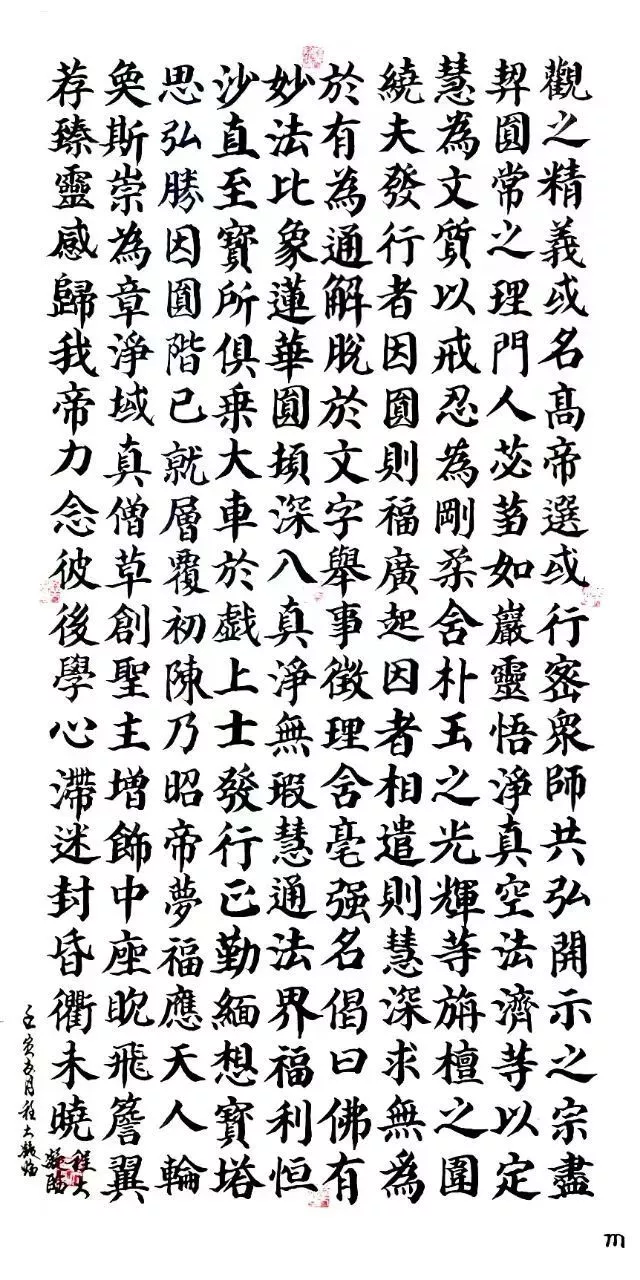 觀之精義或名高帝選或行密眾師共弘開示之宗盡
契圓常之理門人苾蒭如巖靈悟淨真空法濟等以定
慧為文質以戒忍為剛柔含朴玉之光輝等旃檀之圍
繞夫發行者因圓則福廣起因者相遣則慧深求無為
於有為通解脫於文字舉事徵理含毫强名偈曰佛有
妙法比象蓮華圓頓深入真淨無瑕慧通法界福利恒
沙直至寶所俱乘大車於戲上士發行正勤緬想寶塔
思弘勝因圓階已就層覆初陳乃昭帝夢福應天人輪
奐斯崇為章淨域真僧草創聖主增飾中座眈飛簷翼
荐臻靈感歸我帝力念彼後學心滯迷封昏衢未曉
壬寅五月程大臨